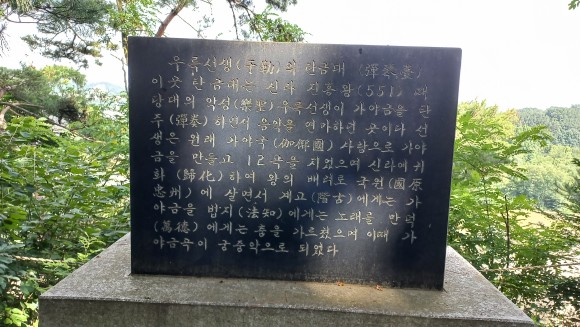 우륵선생(于勒)과 탄금대 (彈琴臺)
이곳 탄금대는 신라 진흥왕(551) 때
당대의 악성(樂聖)우륵선생이 가야금을 탄
주(彈奏)하면서 음악을 연마하던 곳이다 선
생은 원래 가야국(伽倻國) 사람으로 가야
금을 만들고 12곡을 지었으며 신라에 귀
화(歸化)하여 왕의 배려로 국원(國原
忠州)에 살면서 계고(階古)에게는 가
야금을 법지(法知)에게는 노래를 만덕
(萬德)에게는 춤을 가르쳤으며 이때 가
야금곡이 궁중악으로 되었다